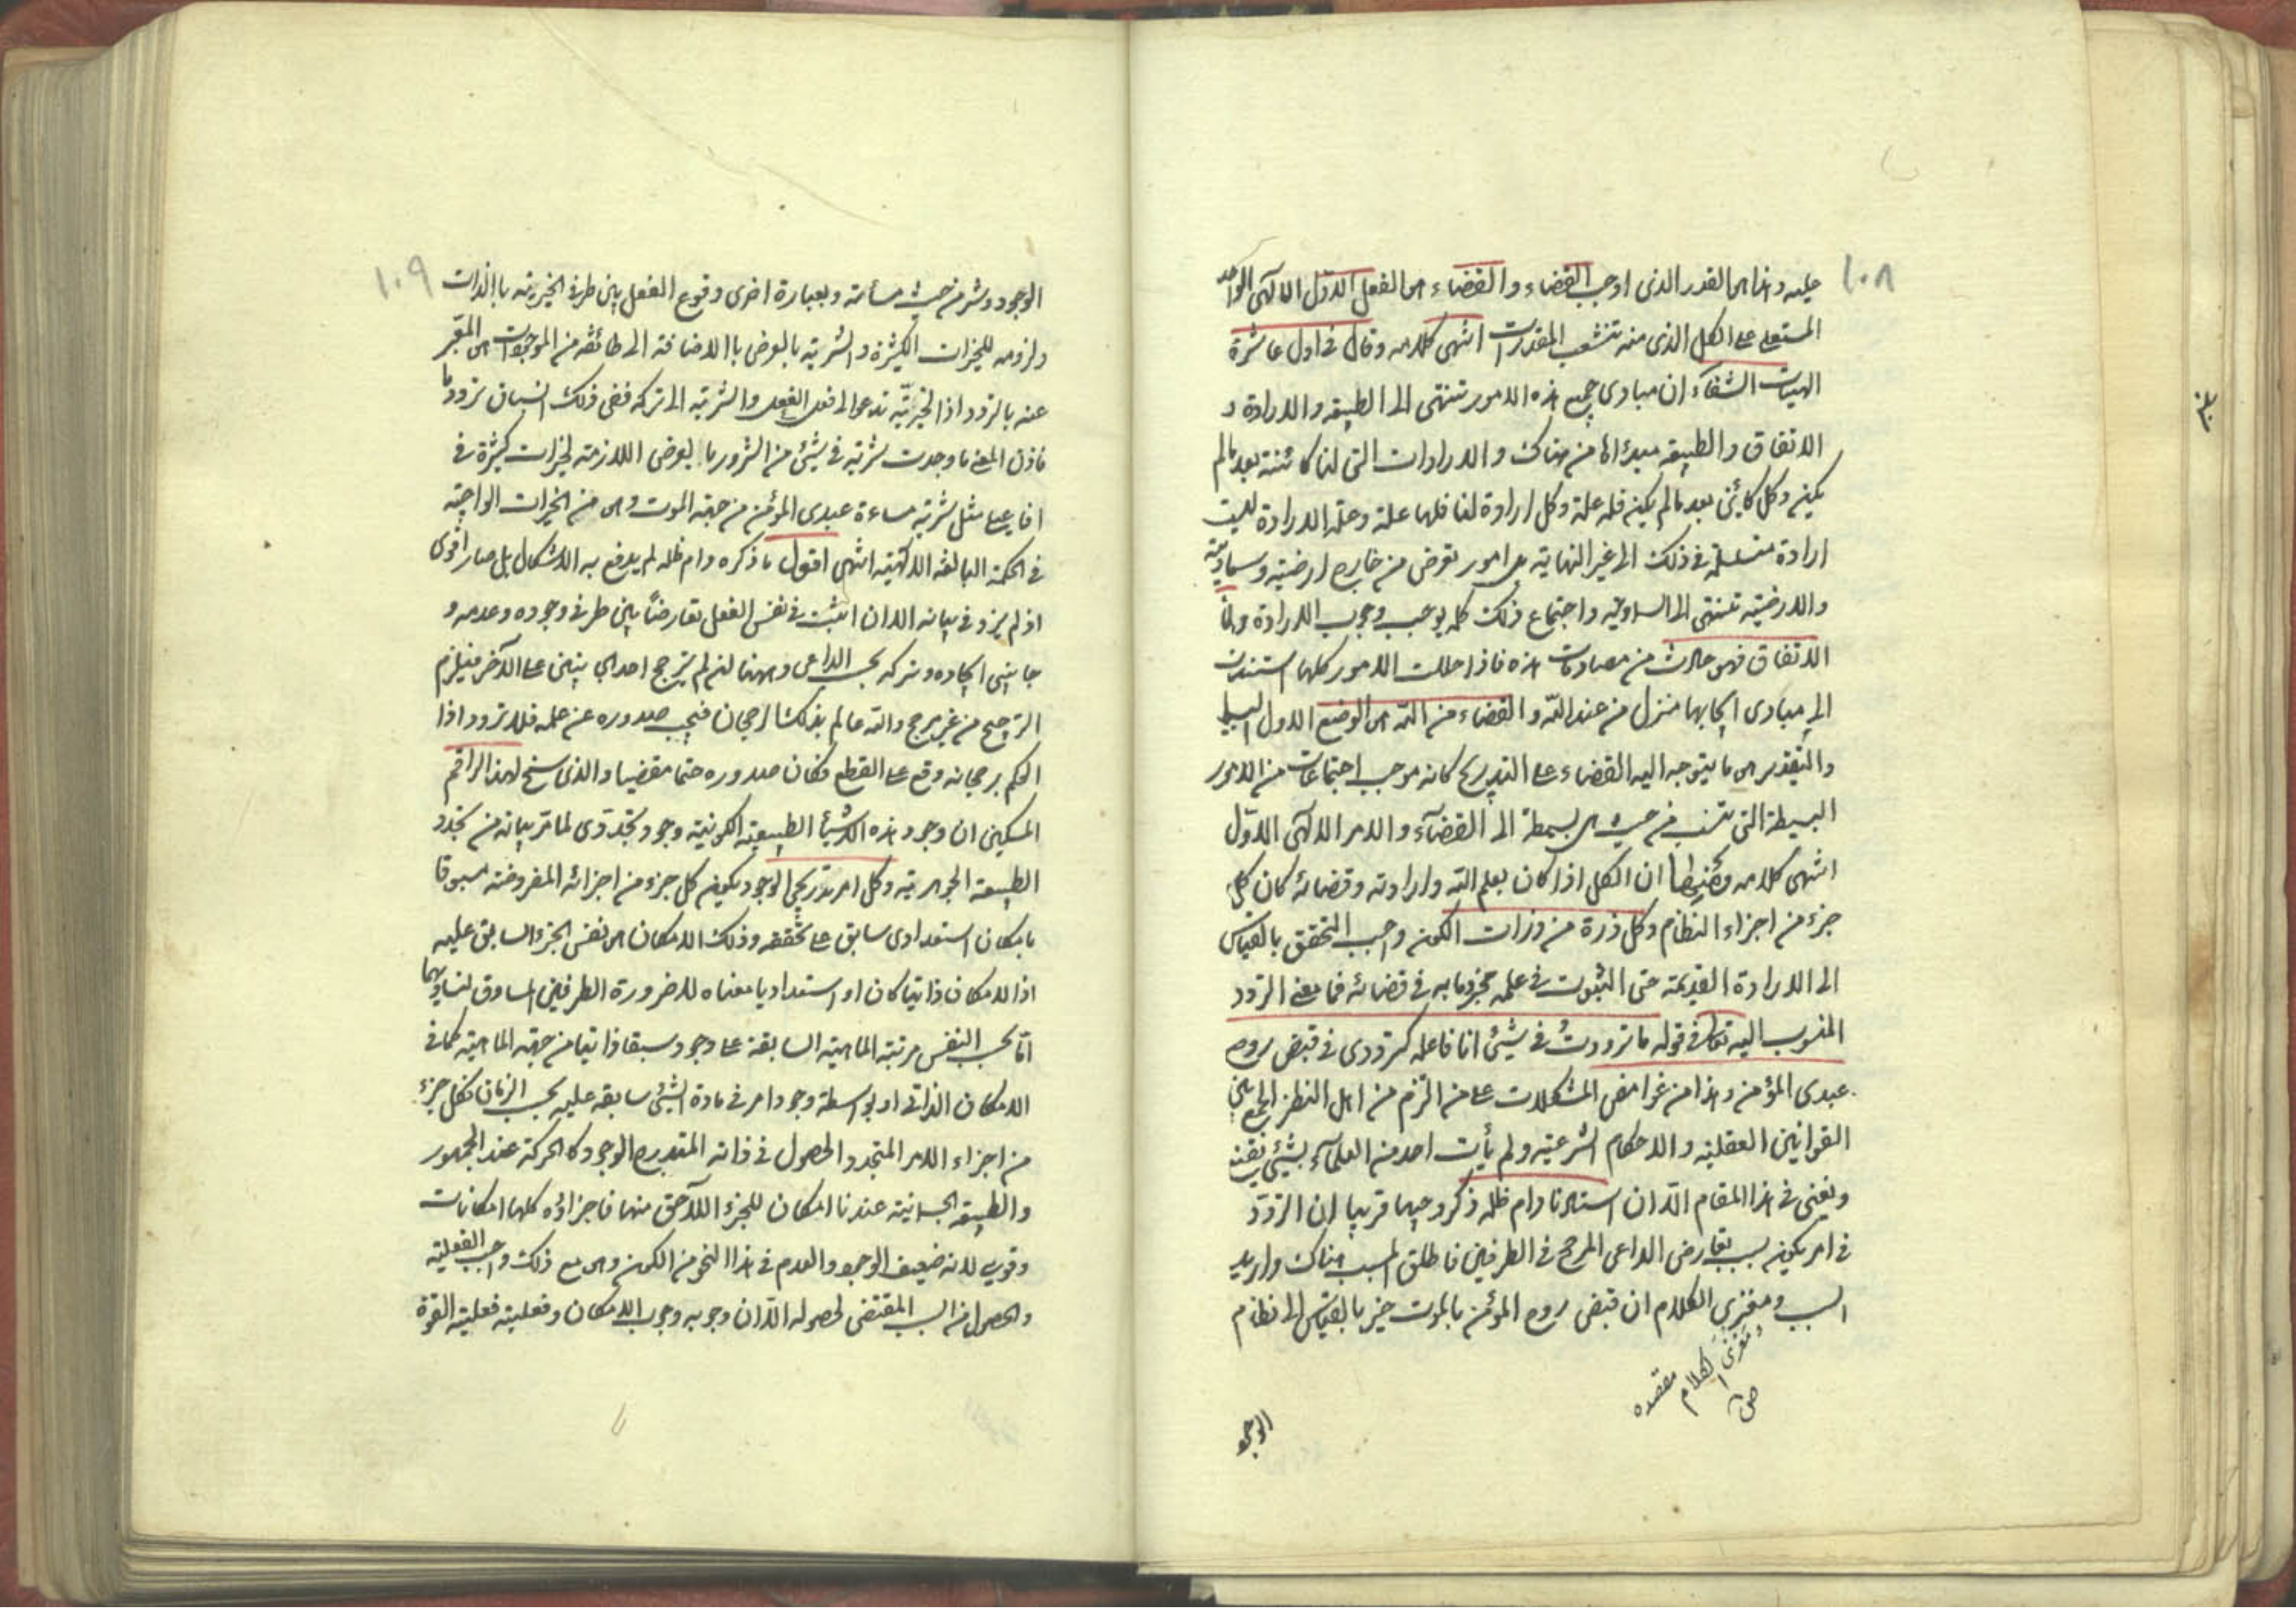 ١٠٨
عليه وهذا هو القدر الذى اوجبه القضاء والقضاء هو الفعل الاول الالهى الواحد
المستعلى على الكل الذى منه تنشعب المقدرات انتهى كلامه وقال فى اول عاشرة
الهيات الشفاء ان مبادى جميع هذه الامور تنتهى الى الطبيعه والارادة و
الاتفاق والطبيعه مبدؤها من هناك والارادات التى لنا كائنة بعد مالم
يكن وكل كائن بعد مالم يكن فله علة وكل ارادة لنا فلها علة وعلة الارادة ليست
ارادة متسلسلة فى ذلك الى غير النهاية بل امور تعرض من خارج ارضية وسماوية
والارضية تنتهى الى السماوية واجتماع ذلك كله يوجب وجوب الارادة واما
الاتفاق فهو حادث من مصادمات هذه فاذا حللت الامور كلها استندت
الى مبادى ايجابها منزل من عند الله والقضاء من الله هو الوضع الاول البسيط
والتقدير هو ما يتوجه اليه القضاء على التدريج كانه موجب اجتماعات من الامور
البسيطة التى تنسب من حيث هى بسيطة الى القضآء والامر الالهى الاول
انتهى كلامه ان الكل اذا كان بعلم الله وارادته وقضائه كان كل
جزء من اجزاء النظام وكل ذرة من ذرات الكون واجب التحقق بالقياس
الى الارادة القديمة حتى الثبوت فى علمه مجزوما به فى قضائه فما معنى التردد
المنسوب اليه تعالى فى قوله ما ترددتُ فى شيئ انا فاعله كترددى فى قبض روح
عبدى المؤمن وهذا من غوامض المشكلات على من التزم من اهل النظر الجمع بين
القوانين العقلية والاحكام الشرعية ولم يأت احد من العلمآء بشيئ
ويغنى فى هذا المقام الا ان استادنا دام ظله ذكر وجها قريبا ان التردد
فى امر يكون بسبب تعارض الداعى المرجح فى الطرفين فاطلق المسبب هناك واريد
السبب ومغزى الكلام ان قبض روح المؤمن بالموت خير بالقياس الى نظام
مغزى الكلام مقصده
ص
الوجود
١٠٩
الوجود وشر من حيث مسائته وبعبارة اخرى وقوع الفعل بين طرفى الخيرية باالذات
ولزومه للخيرات الكثيرة والشرية بالعرض باالاضافة الى طائفة من الموجودات هو المعبر
عنه بالتردد اذ الخيريّة تدعو الى فعل الفعل والشرية الى تركه ففى ذلك انسياق تردد ما
فاذن المعنى ما وجدت شرية فى شيئ من الشرور بالعرض اللازمة لخيرات كثيرة فى
افاعيلى مثل شرية مساءة عبدى المؤمن من جهة الموت وهو من الخيرات الواجبة
فى الحكمة البالغة الالهية انتهى اقول ما ذكره دام ظله لم يدفع به الاشكال بل صار اقوى
اذ لم يزد فى بيانه الا ان اثبت فى نفس الفعل تعارضاً بين طرفى وجوده وعدمه و
جانبى ايجاده وتركه بحسب الداعى وههنا لئن لم يترجح احد الجانبين على الآخر فيلزم
الترجيح من غير مرجح والله عالم بذلك الرجحان فيجب صدوره عن علمه فلا تردد اذا
الحكم برجحانه وقع على القطع فكان صدوره حتما مقضيا والذى سنح لهذا الراقم
المسكين ان وجود هذه الاشيأ الطبيعية الكونية وجود تجددى لما مر بيانه من تجدد
الطبيعة الجوهرية وكل امر تدريجى الوجود يكون كل جزء من اجزائه المفروضة مسبوقا
بامكان استعدادى سابق على تحققه وذلك الامكان هو نفس الجزء السابق عليه
اذ الامكان ذاتيا كان او استعداديا معناه لاضرورة الطرفين المساوق لتساويهما
اما بحسب النفس مرتبة الماهية السابقة على وجود سبقا ذاتيا من جهة الماهية كما فى
الامكان الذاتى او بواسطة وجود امر فى مادة الشيئ سابقة عليه بحسب الزمان فكل جزء
من اجزاء الامر المتجدد الحصول فى ذاته المتدرج الوجود كالحركة عند الجمهور
والطبيعه الجسمانية عندنا امكان للجزء اللآحق منها فاجزاؤه كلها امكانات
وقوى لانه ضعيف الوجود والعدم فى هذا النحو من الكون وهو مع ذلك واجب الفعلية
والحصول من السبب المقتضى لحصوله الّا ان وجوبه وجوب الامكان وفعليته فعلية القوة